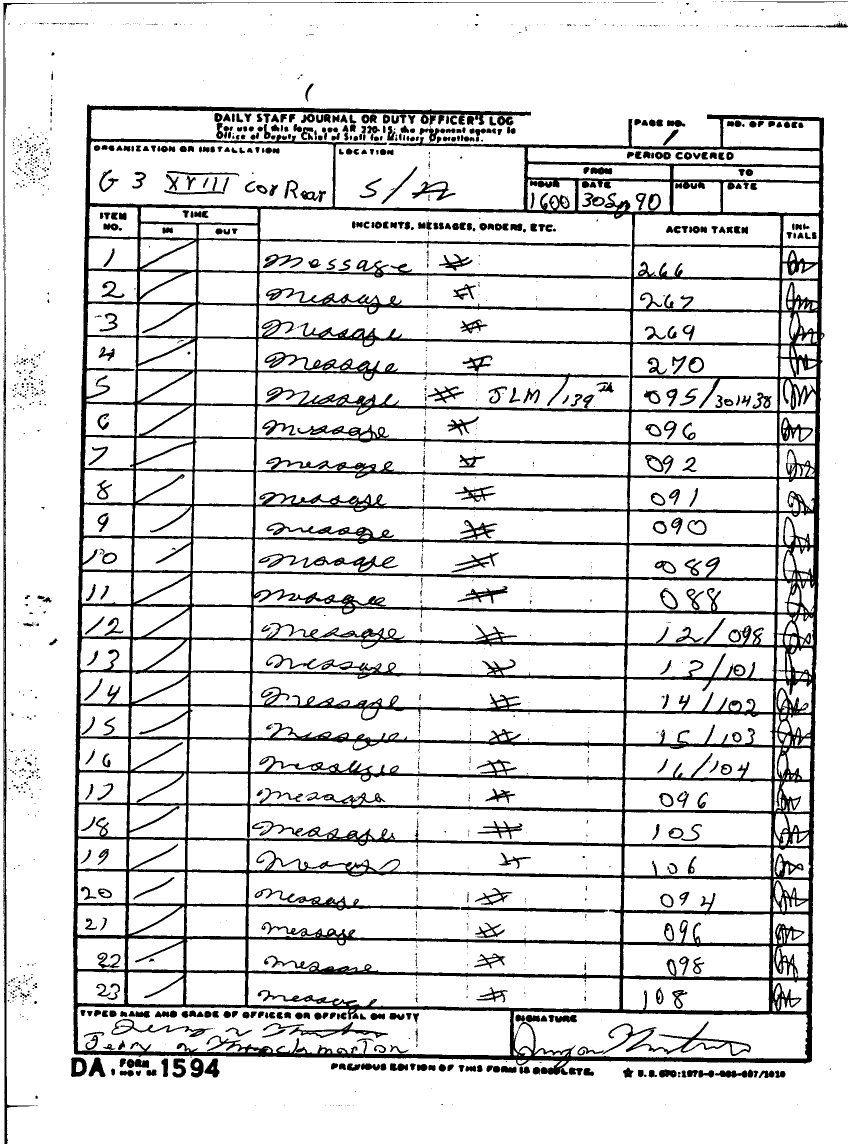 DAILY STAFF JOURNAL OR DUTY OFFICER'S LOG
For use of this form, see AR 220-15; the proponent agency is
Office of Deputy Chief of Staff for Military Operations.
PAGE NO. 1 NO. OF PAGES
ORGANIZATION OR INSTALLATION LOCATION PERIOD COVERED
FROM TO
HOUR DATE HOUR DATE
G 3 XVIII Cor Rear 1600 30 Sep 90
ITEM NO. TIME INCIDENTS, MESSAGES, ORDERS, ETC. ACTION TAKEN INI-TIALS
IN OUT
1 Message # 266
2 Message # 267
3 Message # 269
4 Message # 270
5 Message # JLM/139th 095/301438
6 Message # 096
7 Message # 092
8 Message # 091
9 Message # 090
10 Message # 089
11 Message # 088
12 Message # 12/098
13 Message # 13/101
14 Message # 14/102
15 Message # 15/103
16 Message # 16/104
17 Message # 096
18 Message # 105
19 Message # 106
20 Message # 094
21 message # 096
22 message # 098
23 message # 108
TYPED NAME AND GRADE OF OFFICER OR OFFICIAL ON DUTY SIGNATURE
DA FORM 1 NOV 1594 PREVIOUS EDITION OF THIS FORM IS OBSOLETE.